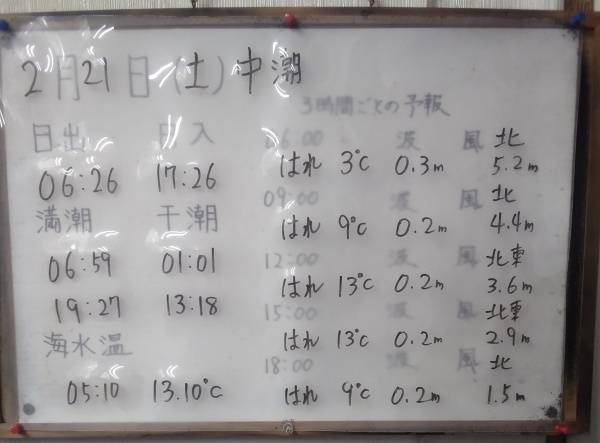 2月21日(土)中潮
3時間ごとの予報
日出 日入
06:26 17:26
満潮 干潮
06:59 01:01
19:27 13:18
海水温
05:10 13.10℃
06:00 波 風 北
はれ 3℃ 0.3m 5.2m
09:00 波 風 北
はれ 9℃ 0.2m 4.4m
12:00 波 風 北東
はれ 13℃ 0.2m 3.6m
15:00 波 風 北東
はれ 13℃ 0.2m 2.9m
18:00 波 風 北
はれ 9℃ 0.2m 1.5m